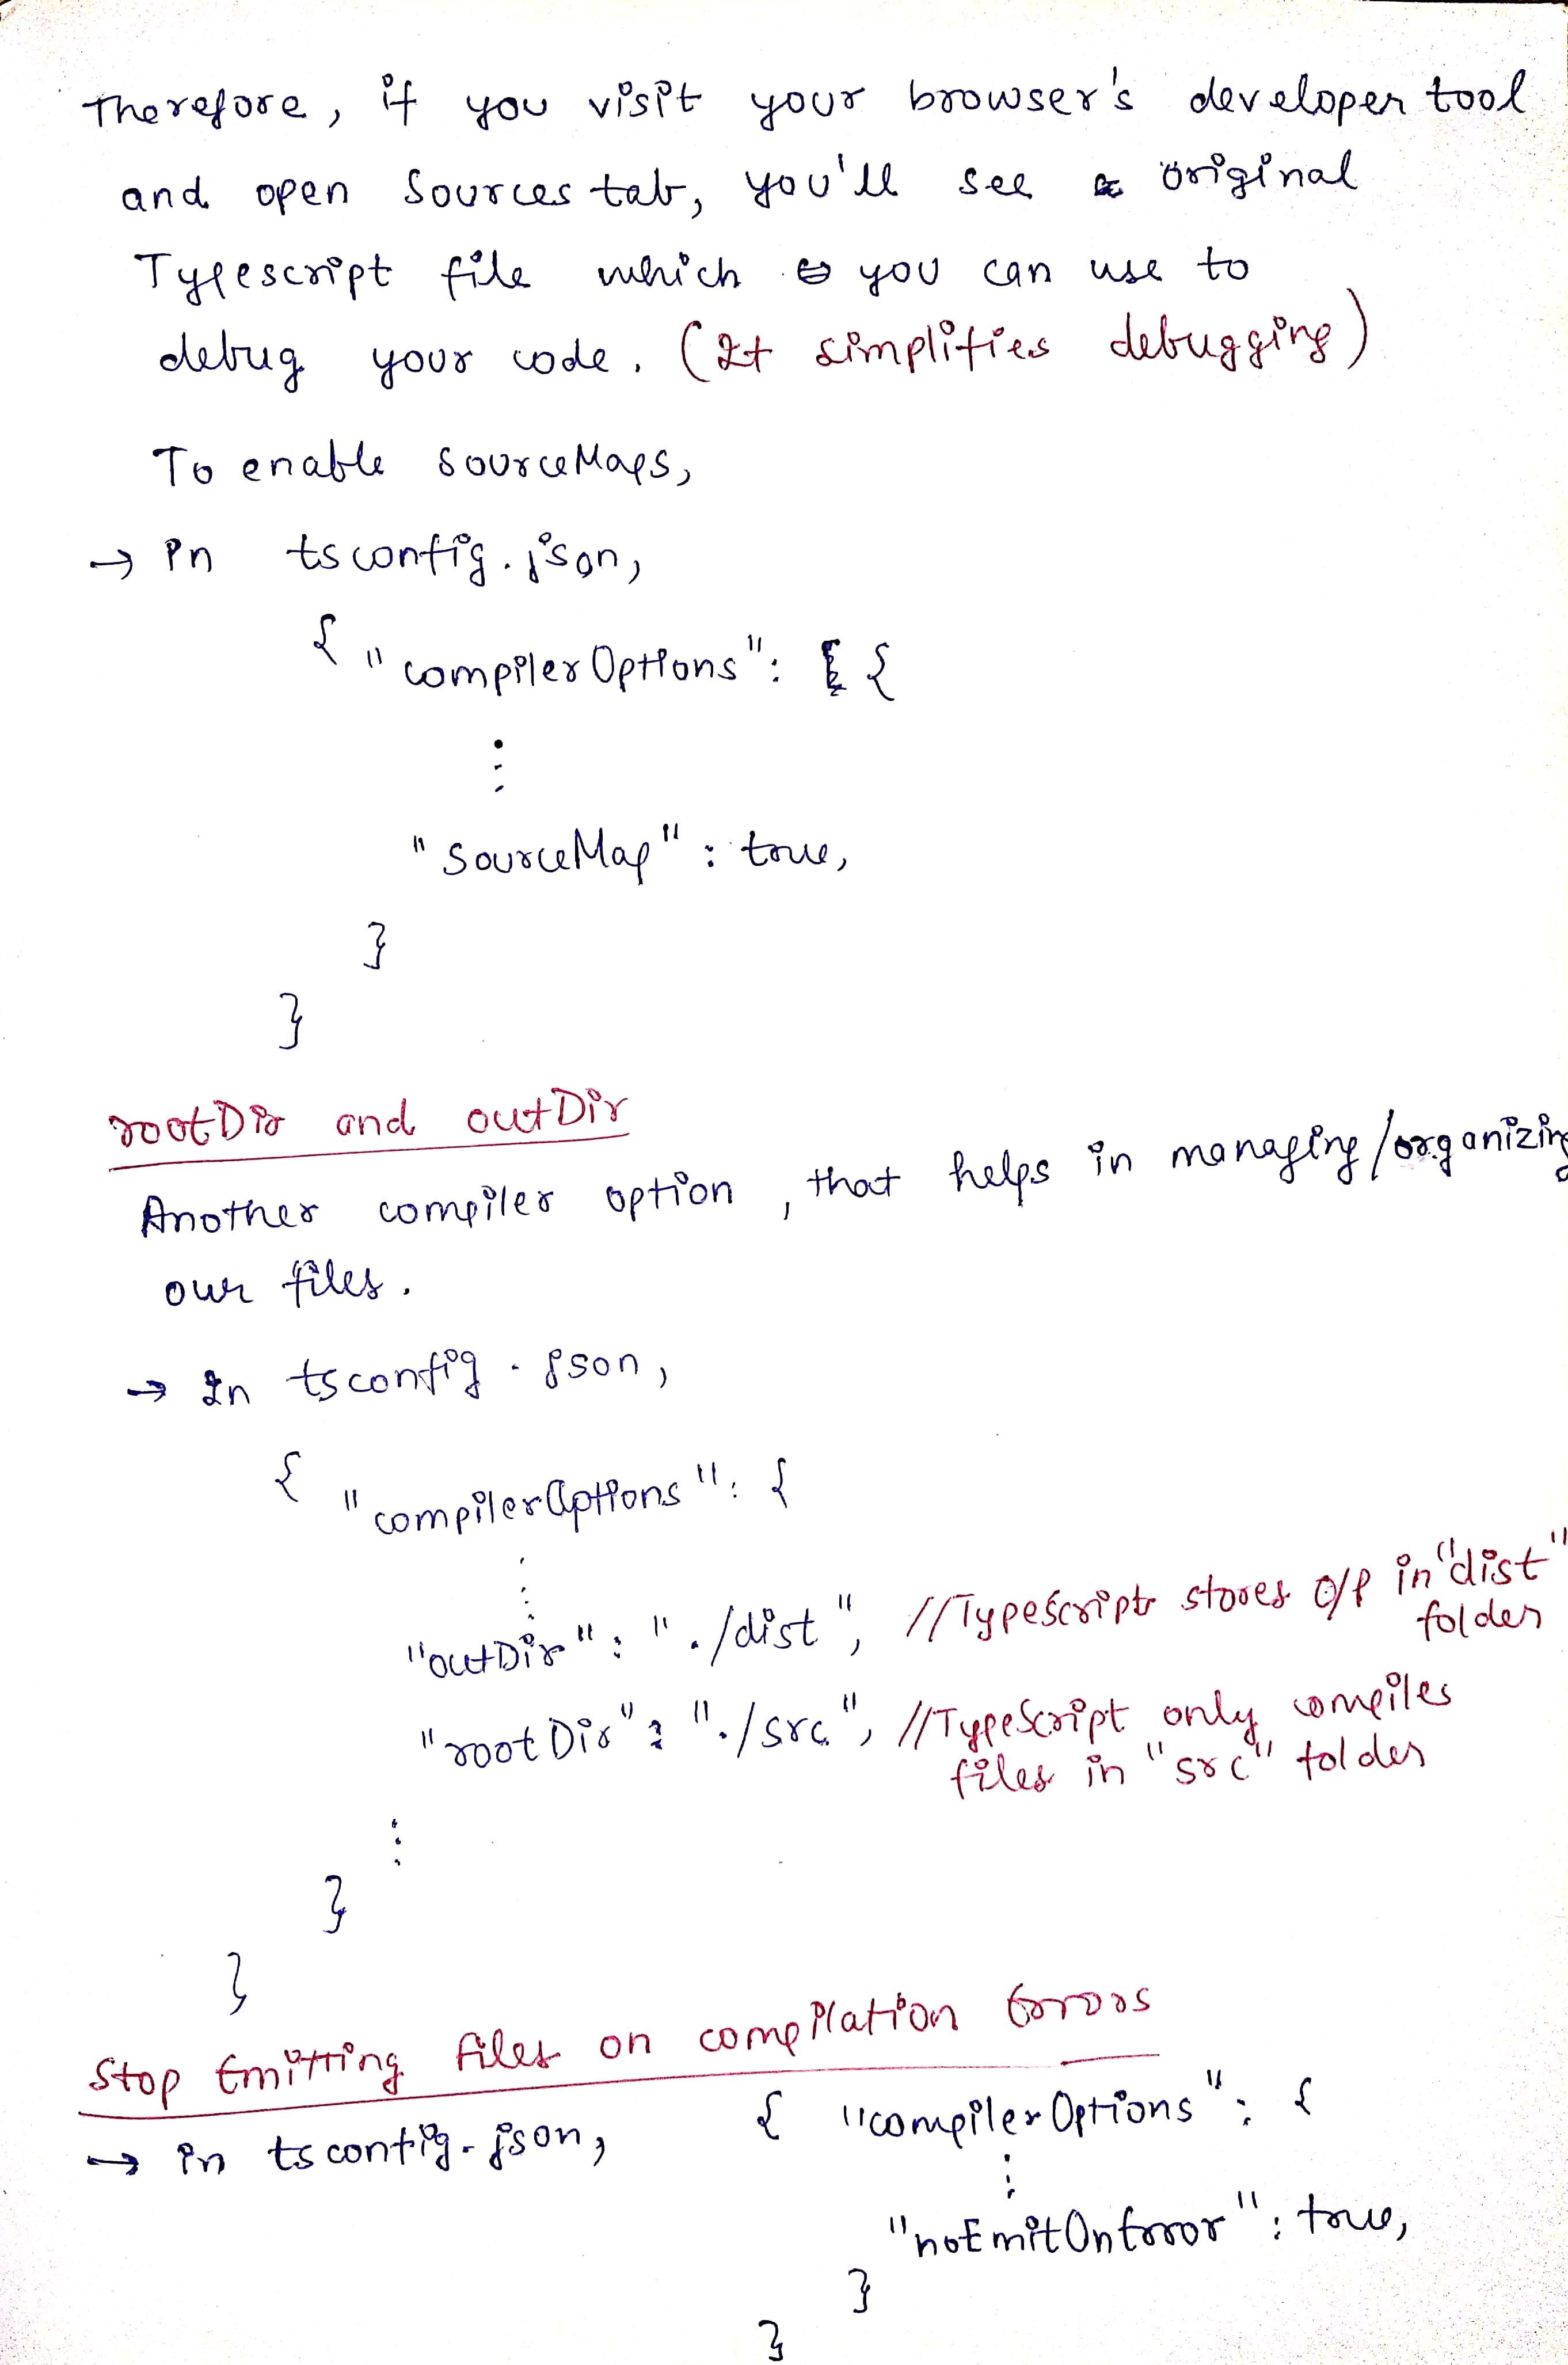 Therefore, if you visit your browser's developer tool
and open Sources tab, you'll see original
Typescript file which you can use to
debug your code. (It simplifies debugging)
To enable sourceMaps,
→ in tsconfig.json,
{ "compilerOptions": {
⋮
"SourceMap" : true,
}
}
rootDir and outDir
Another compiler option, that helps in managing/organizing
our files.
→ In tsconfig.json,
{ "compilerOptions": {
⋮
"outDir" : "./dist", //TypeScript stores O/P in "dist"
folder
"rootDir" : "./src", //TypeScript only compiles
files in "src" folder
⋮
}
}
Stop Emitting files on compilation Errors
→ in tsconfig.json, { "compilerOptions" : {
⋮
"noEmitOnError" : true,
}
}